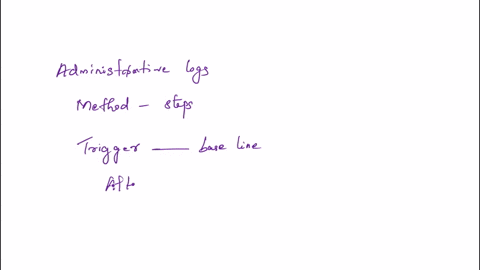 Administrative logs
Method - steps
Trigger — base line
Aft